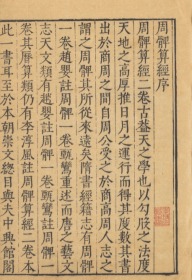 周髀算經序
周髀算經二卷古蓋天之學也以勾股之法度
天地之高厚推日月之運行而得其度數其書
出於商周之間自周公受之於商高周人志之
謂之周髀其所從來遠矣隋書經籍志有周髀
一卷趙嬰註周髀一卷甄鸞重述而唐之藝文
志天文類有趙嬰註周髀一卷甄鸞註周髀一
卷其曆算類仍有李淳風註周髀算經二卷本
此一書耳至於本朝崇文總目與夫中興館閣